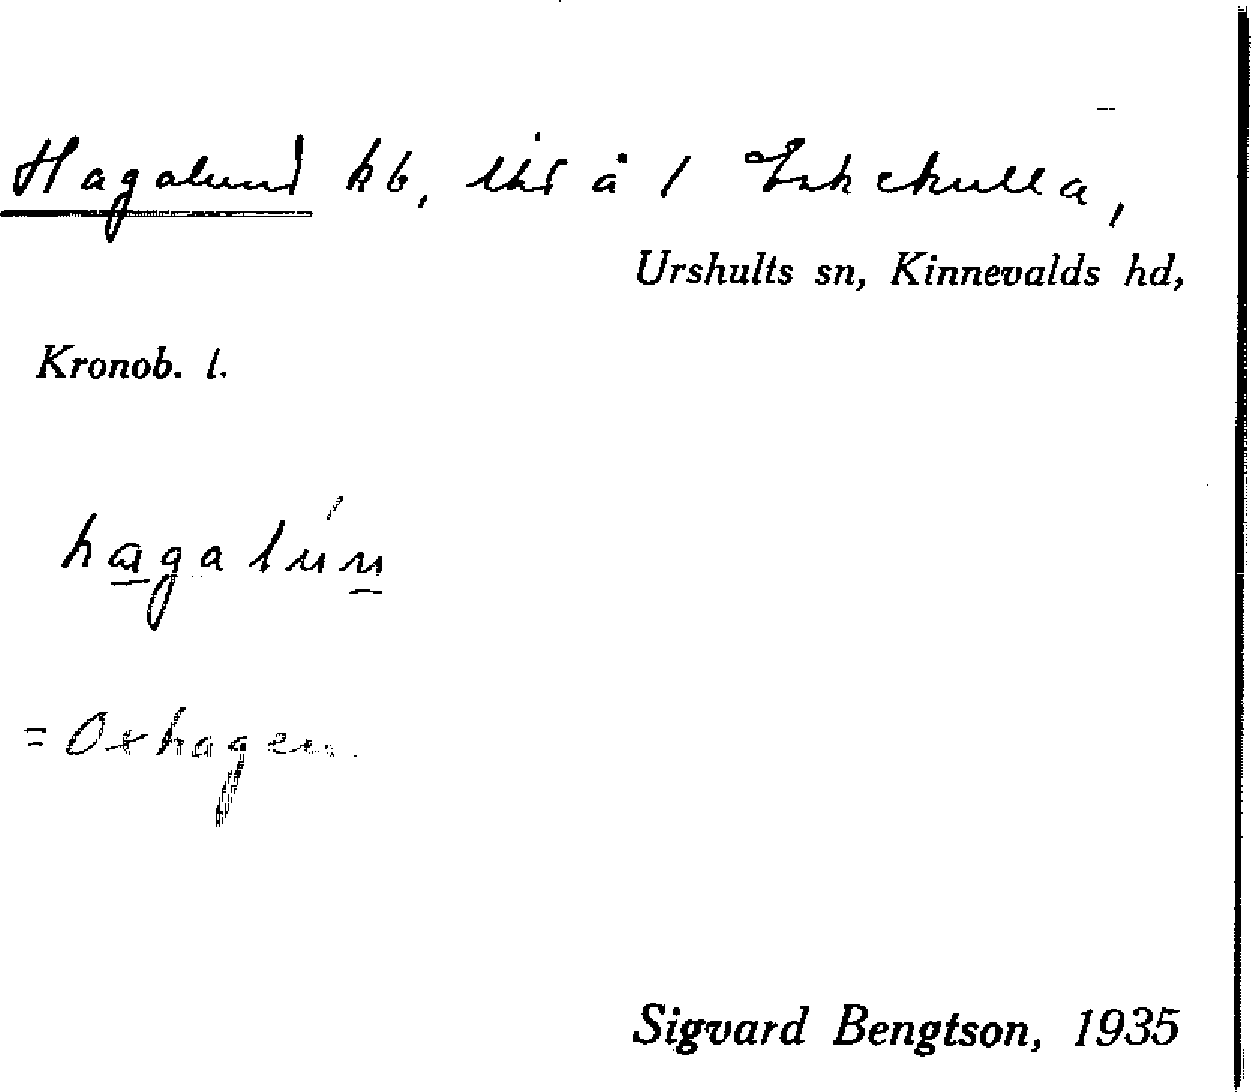 Hagalund kb, lht å 1 Ekhekulla,
Urshults sn, Kinnevalds hd,
Kronob. l.
hagalún
= Oxhagen.
Sigvard Bengtson, 1935